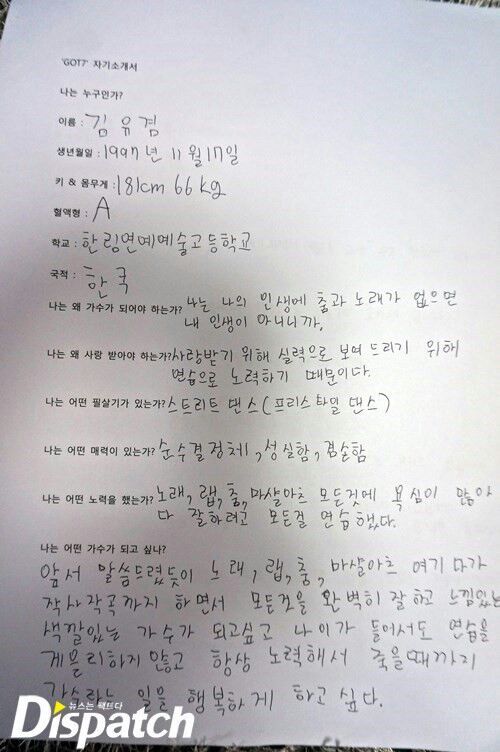 'GOT7' 자기소개서
나는 누구인가?
이름 : 김유겸
생년월일 : 1997년 11월 17일
키 & 몸무게 : 181cm 66kg
혈액형 : A
학교 : 한림연예예술고등학교
국적 : 한국
나는 왜 가수가 되어야 하는가? 나는 나의 인생에 춤과 노래가 없으면
내 인생이 아니니까.
나는 왜 사랑 받아야 하는가? 사랑받기 위해 실력으로 보여 드리기 위해
연습으로 노력하기 때문이다.
나는 어떤 필살기가 있는가? 스트리트 댄스(프리스타일 댄스)
나는 어떤 매력이 있는가? 순수결정체, 성실함, 겸손함
나는 어떤 노력을 했는가? 노래, 랩, 춤, 마샬아츠 모든것에 욕심이 많아
다 잘하려고 모든걸 연습했다.
나는 어떤 가수가 되고 싶나?
앞서 말씀드렸듯이 노래, 랩, 춤, 마샬아츠 여기다가
작사작곡까지 하면서 모든것을 완벽히 잘하고 느낌있는
색깔있는 가수가 되고싶고 나이가 들어서도 연습을
게을리하지 않고 항상 노력해서 죽을때까지
가수라는 일을 행복하게 하고 싶다.
뉴스는 팩트다
Dispatch